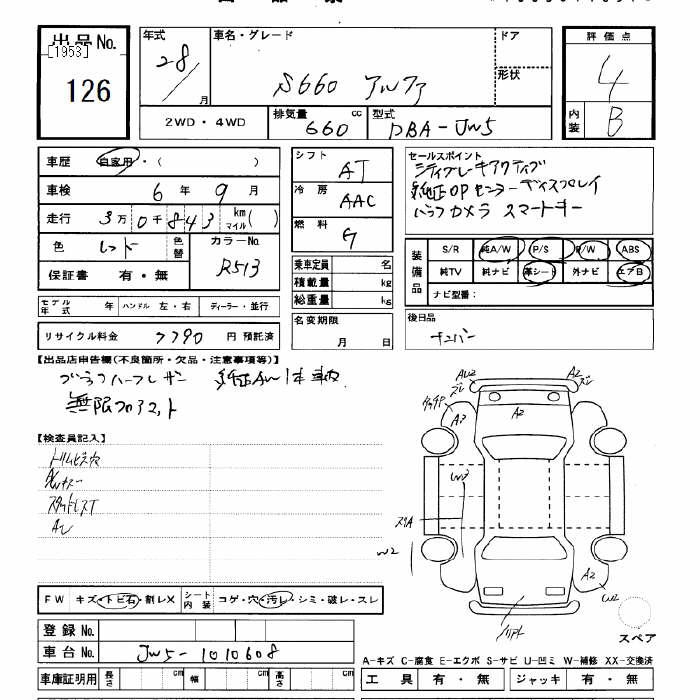 出品No.
[1953]
126
年式
28/
月
車名・グレード
S660 アルファ
ドア
形状
2WD・4WD
排気量
660
cc
型式
DBA-JW5
評価点
4
内装
B
車歴
自家用・( )
車検
6年9月
走行
3万0千843
km
マイル( )
色
レッド
色替
カラーNo.
R513
保証書
有・無
モデル年式
年
ハンドル 左・右
ディーラー・並行
リサイクル料金
7790
円 預託済
シフト
AT
冷房
AAC
燃料
G
乗車定員
名
積載量
kg
総重量
kg
名変期限
月 日
セールスポイント
シティブレーキアクティブ
純正OPセンターディスプレイ
バックカメラ スマートキー
装備品
S/R
純A/W
P/S
P/W
ABS
純TV
純ナビ
革シート
外ナビ
エアB
ナビ型番:
後日品
ナンバー
【出品店申告欄(不良箇所・欠品・注意事項等)】
純正AW1本
無限フロアマット
【検査員記入】
トリムビス穴
スタッドレスT
FW
キズ・トビ石・割レX
シート内装
コゲ・穴・汚レ・シミ・破レ・スレ
登録No.
車台No.
JW5-1010608
車庫証明用
長さ
cm
幅
cm
高さ
cm
A2
ズレ
A2
ズレ
A2
A3
W3
スリA
W2
A2
W2
スペア
A-キズ C-腐食 E-エクボ S-サビ U-凹ミ W-補修 XX-交換済
工具
有・無
ジャッキ
有・無